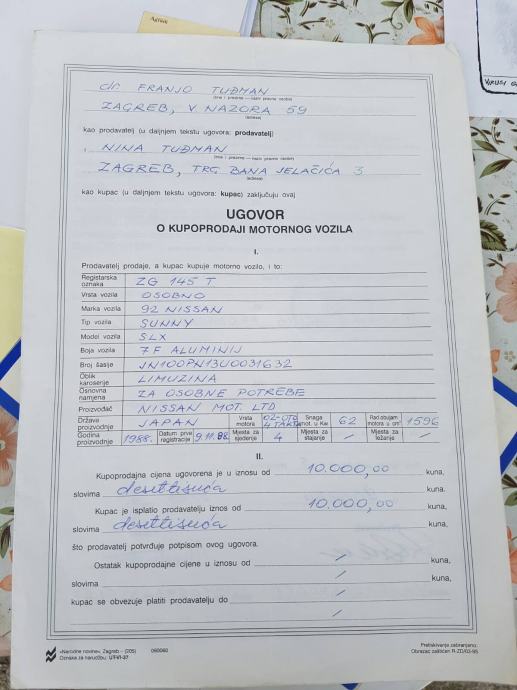 Agram
dr. FRANJO TUĐMAN
(ime i prezime — naziv pravne osobe)
ZAGREB, V NAZORA 59
(adresa)
kao prodavatelj (u daljnjem tekstu ugovora: prodavatelj)
NINA TUĐMAN
(ime i prezime — naziv pravne osobe)
ZAGREB, TRG BANA JELAČIĆA 3
(adresa)
kao kupac (u daljnjem tekstu ugovora: kupac) zaključuju ovaj
UGOVOR
O KUPOPRODAJI MOTORNOG VOZILA
I.
Prodavatelj prodaje, a kupac kupuje motorno vozilo, i to:
Registarska oznaka ZG 145 T
Vrsta vozila OSOBNO
Marka vozila 92 NISSAN
Tip vozila SUNNY
Model vozila SLX
Boja vozila 7F ALUMINIJ
Broj šasije JN100PN13U0031632
Oblik karoserije LIMUZINA
Osnovna namjena ZA OSOBNE POTREBE
Proizvođač NISSAN MOT. LTD
Država proizvodnje JAPAN Vrsta motora 02-OTO 4 TAKTA Snaga mot. u Kw 62 Rad.obujam motora u cm³ 1596
Godina proizvodnje 1988. Datum prve registracije 9.11.88. Mjesta za sjedenje 4 Mjesta za stajanje / Mjesta za ležanje /
II.
Kupoprodajna cijena ugovorena je u iznosu od 10.000,00 kuna,
slovima desettisuća
Kupac je isplatio prodavatelju iznos od 10.000,00 kuna,
slovima desettisuća kuna,
što prodavatelj potvrđuje potpisom ovog ugovora.
Ostatak kupoprodajne cijene u iznosu od / kuna,
slovima / kuna,
kupac se obvezuje platiti prodavatelju do /
/
»Narodne novine«, Zagreb – (205) 060060
Oznaka za narudžbu: UT-VI-37
Pretiskivanje zabranjeno.
Obrazac zaštićen R-ZD/03-95